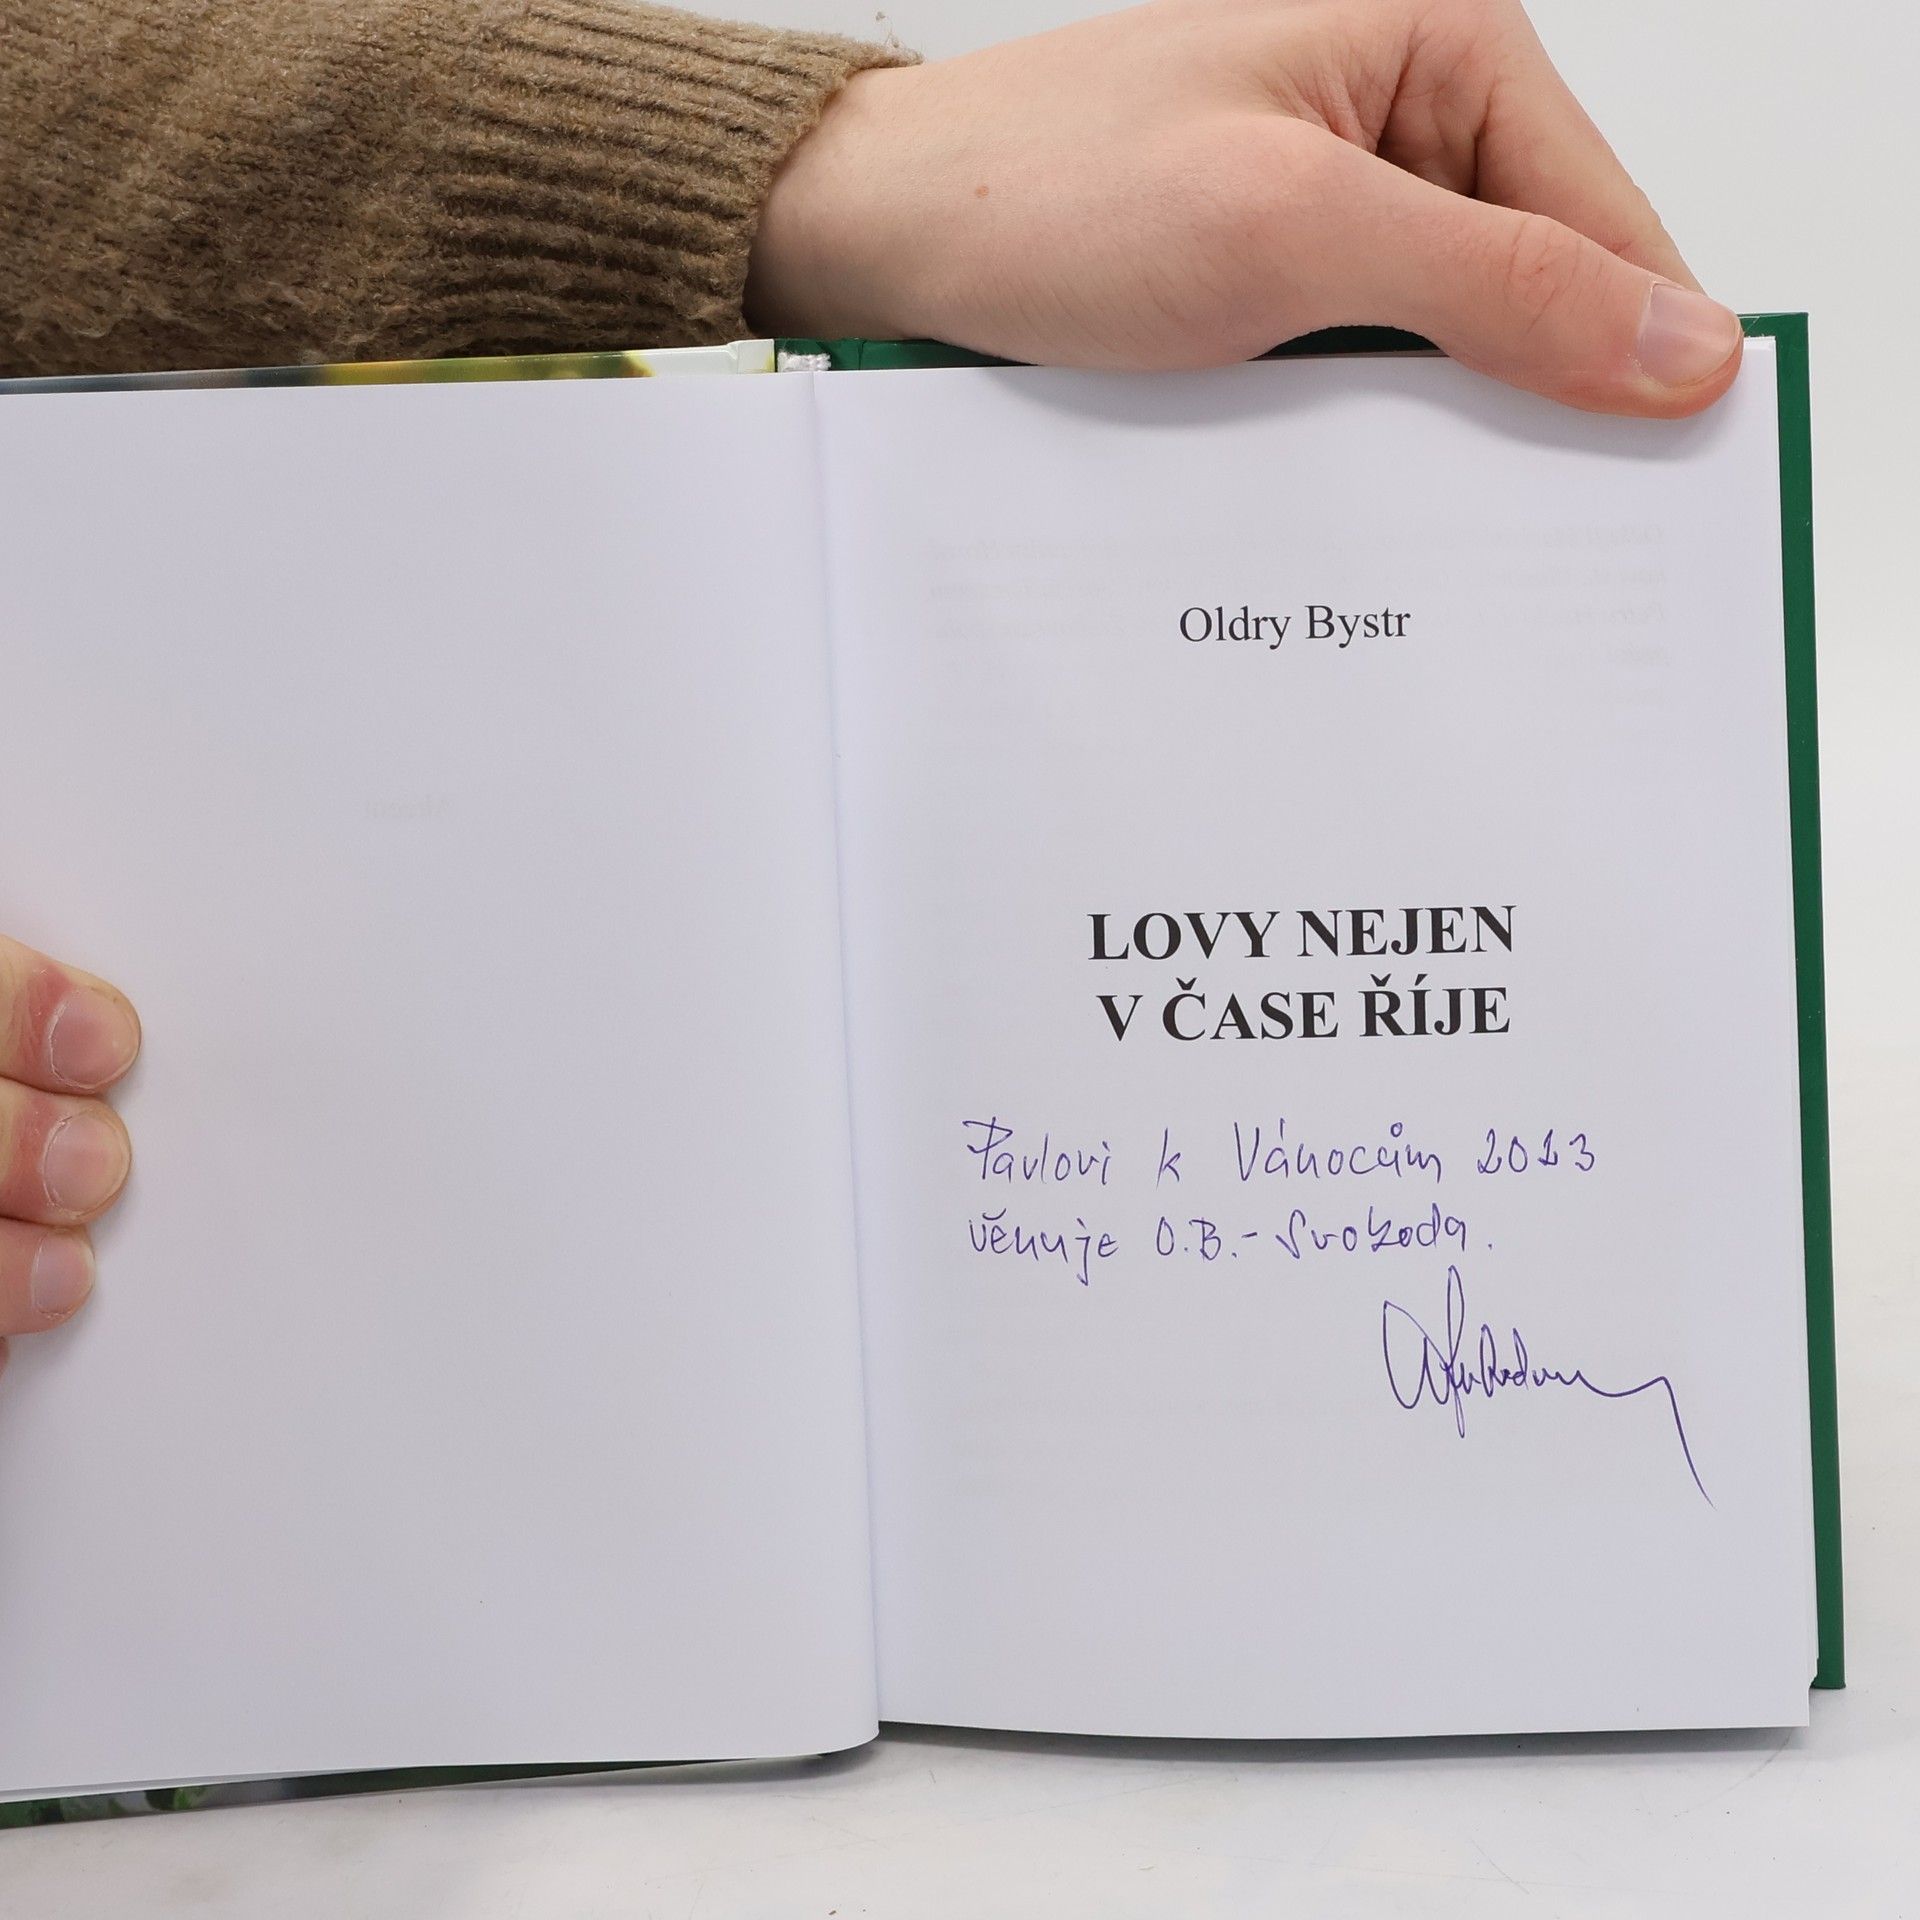 Oldry Bystr
LOVY NEJEN
V ČASE ŘÍJE
Pavlovi k Vánocům 2013
věnuje O.B.-Svoboda.